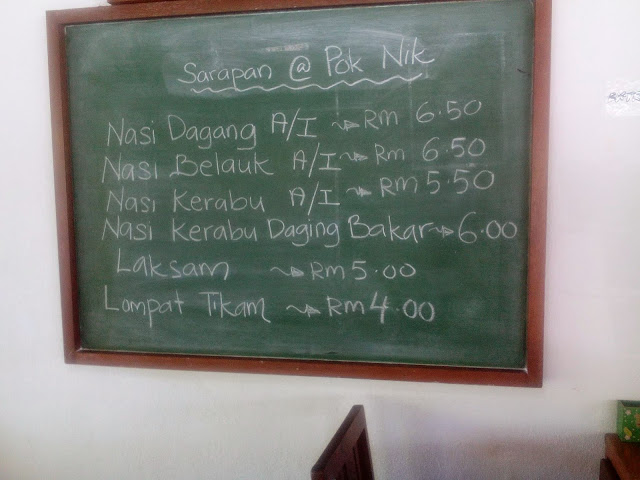 Sarapan @ Pok Nik
Nasi Dagang A/I → Rm 6.50
Nasi Belauk A/I → Rm 6.50
Nasi Kerabu A/I → Rm 5.50
Nasi Kerabu Daging Bakar → 6.00
Laksam → Rm 5.00
Lompat Tikam → Rm 4.00